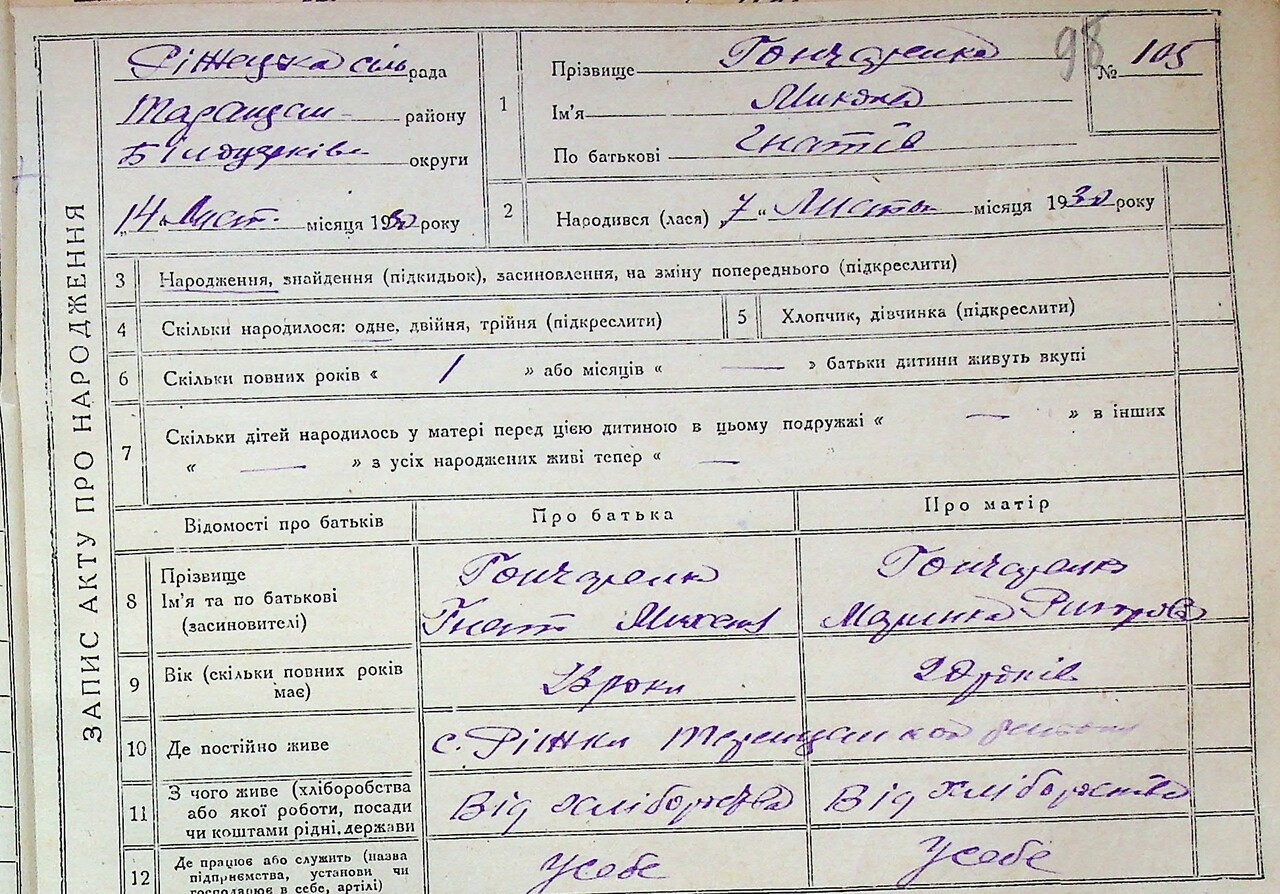 ЗАПИС АКТУ ПРО НАРОДЖЕННЯ
Ріжецка сіль рада
Таращан- району
Білоцерків округи
„14" Лист. місяця 1930 року
1
Прізвище Гончаренко
Ім'я Микола
По батькові Гнатів
98
№ 105
2 Народився (лася) „7" Листоп місяця 1930 року
3 Народження, знайдення (підкидьок), засиновлення, на зміну попереднього (підкреслити)
4 Скільки народилося: одне, двійня, трійня (підкреслити)
5 Хлопчик, дівчинка (підкреслити)
6 Скільки повних років « / » або місяців « — » батьки дитини живуть вкупі
7 Скільки дітей народилось у матері перед цією дитиною в цьому подружжі « — » в інших
« — » з усіх народжених живі тепер « —
Відомості про батьків Про батька Про матір
8 Прізвище
Ім'я та по батькові
(засиновителі)
Гончаренк
Гнат
Гончаренко
9 Вік (скільки повних років
має)
роки
20 років
10 Де постійно живе с. Ріжки
11 З чого живе (хліборобства
або якої роботи, посади
чи коштами рідні, держави
Від хліборобства
Від хліборобства
12 Де працює або служить (назва
підприємства, установи чи
господарює в себе, артілі)
У себе
У себе